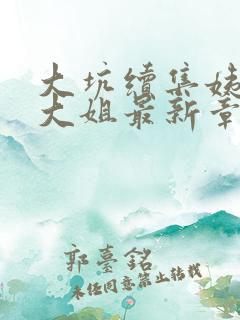 大坑续集姊
大姐最新章
郭臺銘
未经同意禁止转载